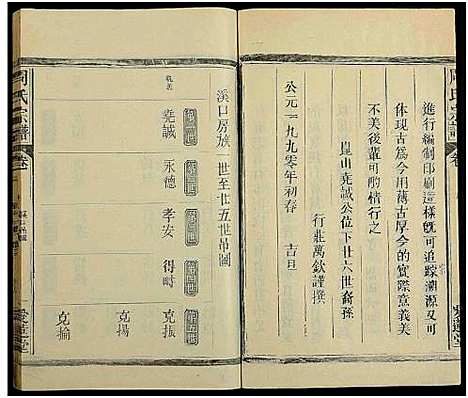 周氏宗譜
卷
進行編制印刷這樣旣可追踪溯源又可
体现古爲今用薄古厚今的實際意義美
不美後輩可酌情行之
公元一九九〇年初春 吉日
嵐山堯誠公位下廿六世裔孫
行莊萬欽謹撰
溪口房族一世至廿五世吊圖
堯誠
永德
孝安
得時
克振
克揚
克掄
周氏宗譜
卷
愛蓮堂